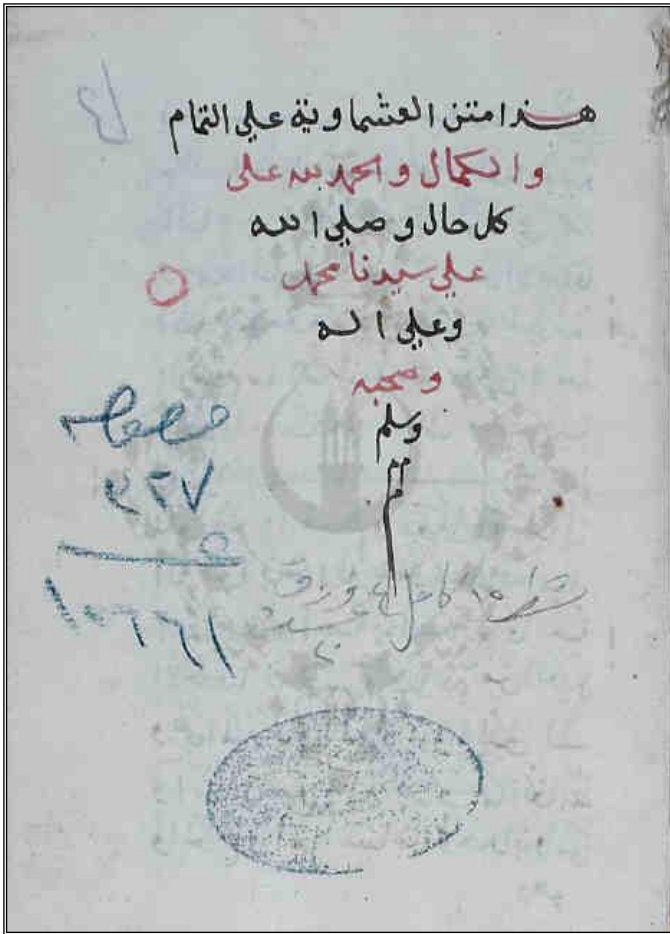 هذا متن العشماوية علي التمام
والكمال والحمد لله على
كل حال وصلي الله
علي سيدنا محمد
وعلي اله
وصحبه
وسلم
م
٢٢٧
١٠٦٦١